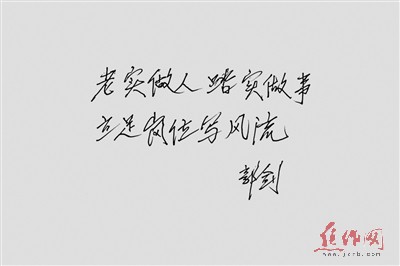 老实做人 踏实做事
立足岗位写风流
郭剑
焦作网
www.jzrb.com